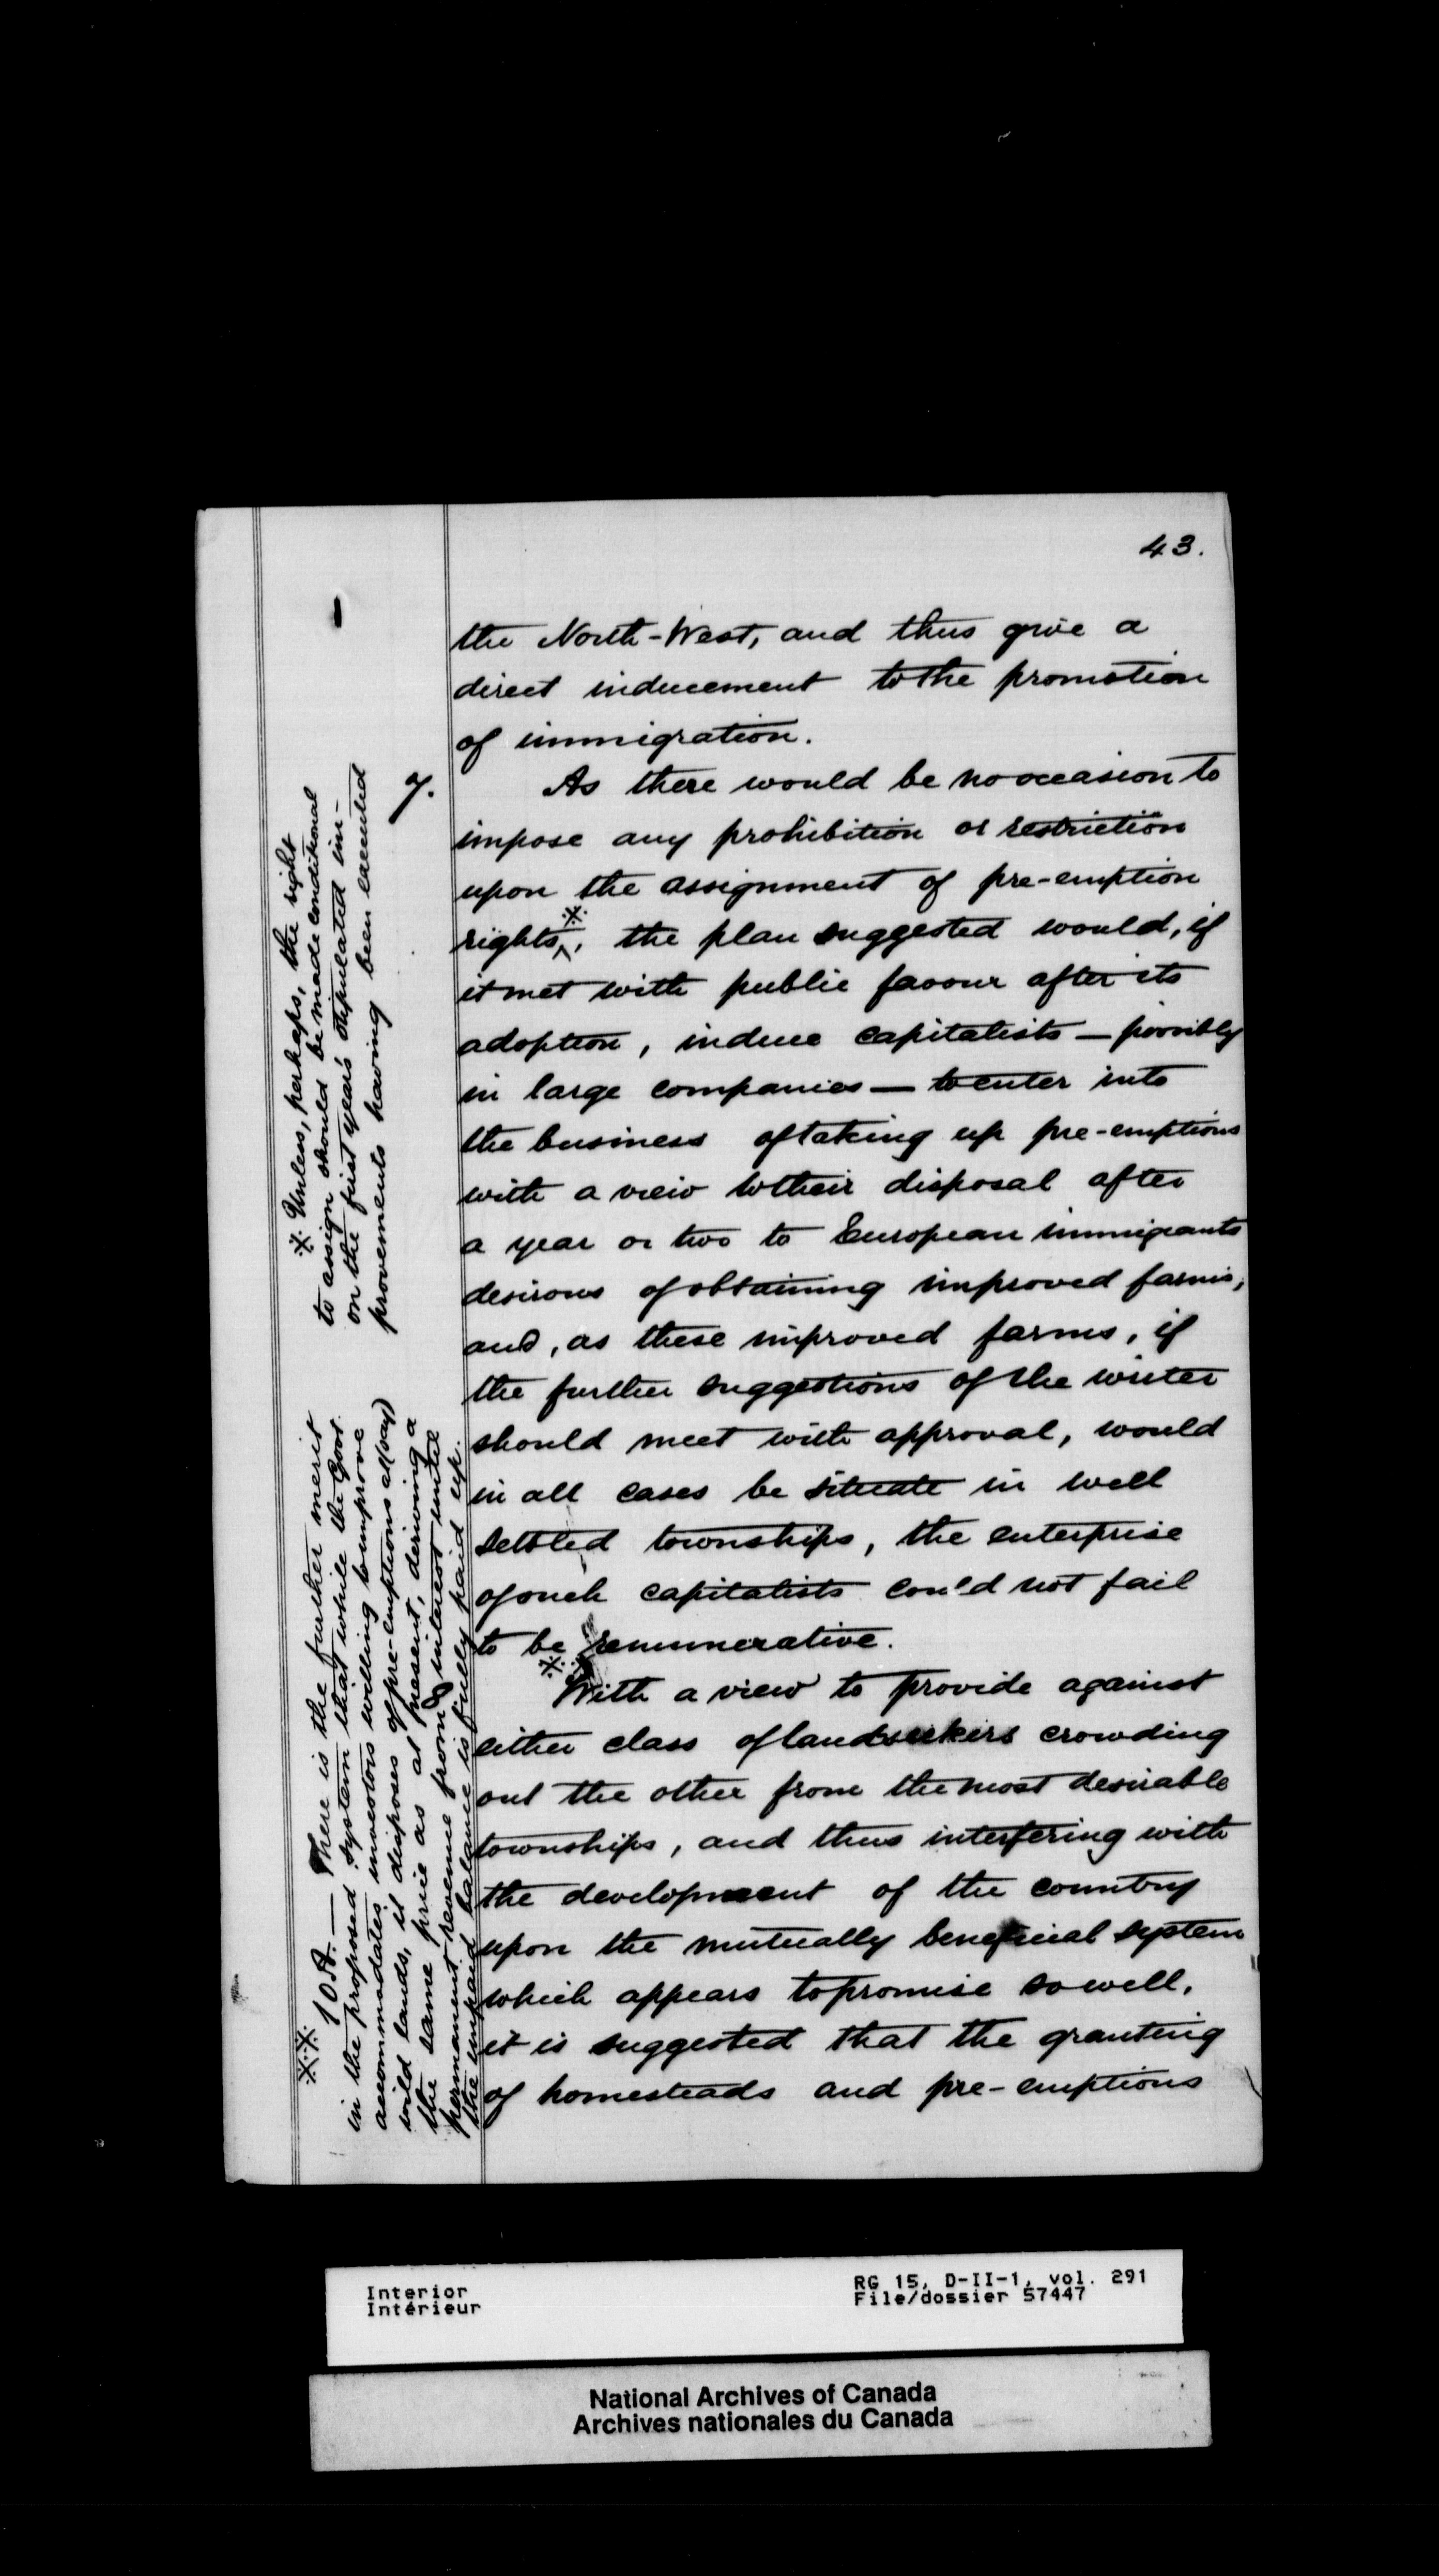 43.
the North-West, and thus give a
direct inducement to the promotion
of immigration.
7.
As there would be no occasion to
impose any prohibition or restriction
upon the assignment of pre-emption
rights ※, the plan suggested would, if
it met with public favour after its
adoption, induce capitalists — possibly
in large companies — to enter into
the business of taking up pre-emptions
with a view to their disposal after
a year or two to European immigrants
desirous of obtaining improved farms,
and, as these improved farms, if
the further suggestions of the writer
should meet with approval, would
in all cases be situate in well
settled townships, the enterprise
of such capitalists could not fail
to be remunerative.
※※
With a view to provide against
either class of landseekers crowding
out the other from the most desirable
townships, and thus interfering with
the development of the country
upon the mutually beneficial system
which appears to promise so well,
it is suggested that the granting
of homesteads and pre-emptions
※ Unless, perhaps, the right
to assign should be made conditional
on the first year's stipulated im-
provements having been executed
※※ 10A. — There is the further merit
in the proposed system that while the Govt.
accommodates investors willing to improve
wild lands, it disposes of pre-emptions at (say)
the same price as at present, deriving a
permanent revenue from interest until
the unpaid balance is finally paid up.
Interior
Intérieur
RG 15, D-II-1, vol. 291
File/dossier 57447
National Archives of Canada
Archives nationales du Canada